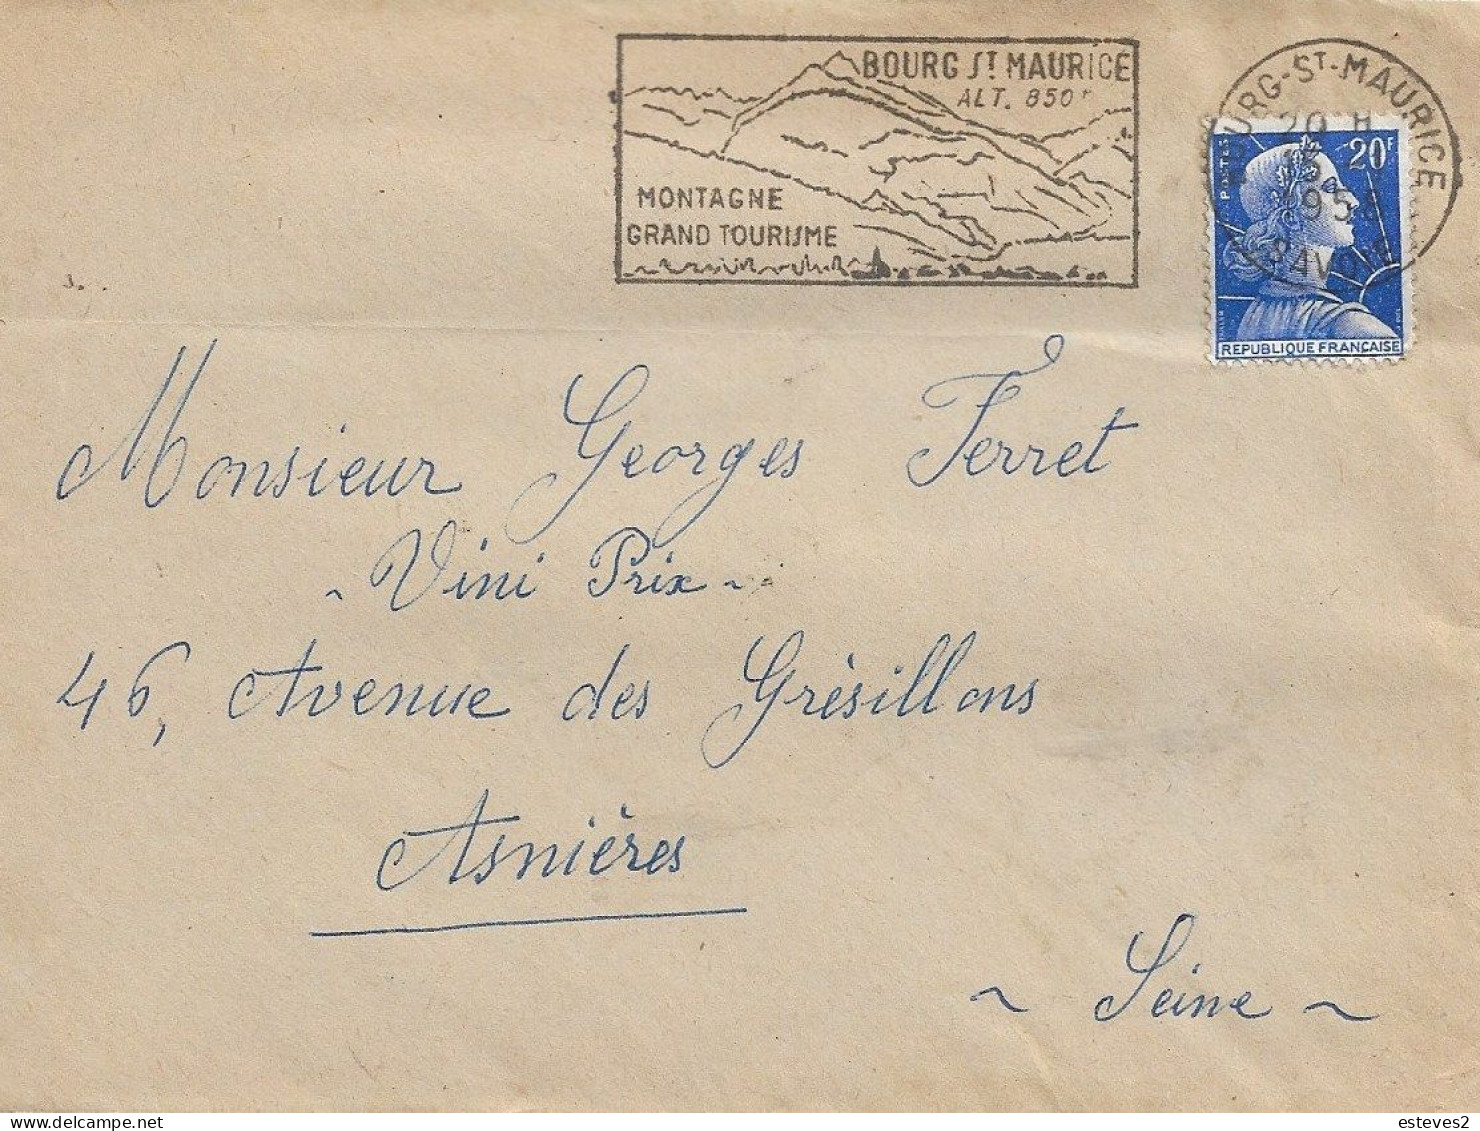 BOURG ST MAURICE
ALT. 850
MONTAGNE
GRAND TOURISME
BOURG-ST-MAURICE
20 H
195
SAVOIE
POSTES
20F
REPUBLIQUE FRANÇAISE
Monsieur Georges Ferret
~ Vini Prix ~
46, Avenue des Grésillons
Asnières
~ Seine ~
esteves2